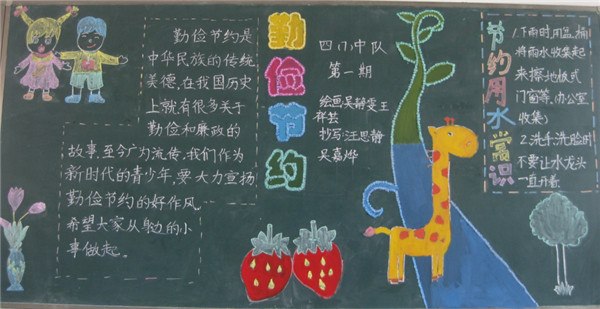 勤俭节约是
中华民族的传统
美德,在我国历史
上就有很多关于
勤俭和廉政的
故事,至今广为流传,我们作为
新时代的青少年,要大力宣扬
勤俭节约的好作风
希望大家从身边的小
事做起。
勤俭节约
四(1)中队
第一期
绘画:吴静雯王
祥芸
抄写:汪思静
吴嘉烨
节约用水常识
1.下雨时,用盆,桶
将雨水收集起
来擦地板或
门窗等,(办公室
收集)
2.洗手、洗脸时
不要让水龙头
一直开着